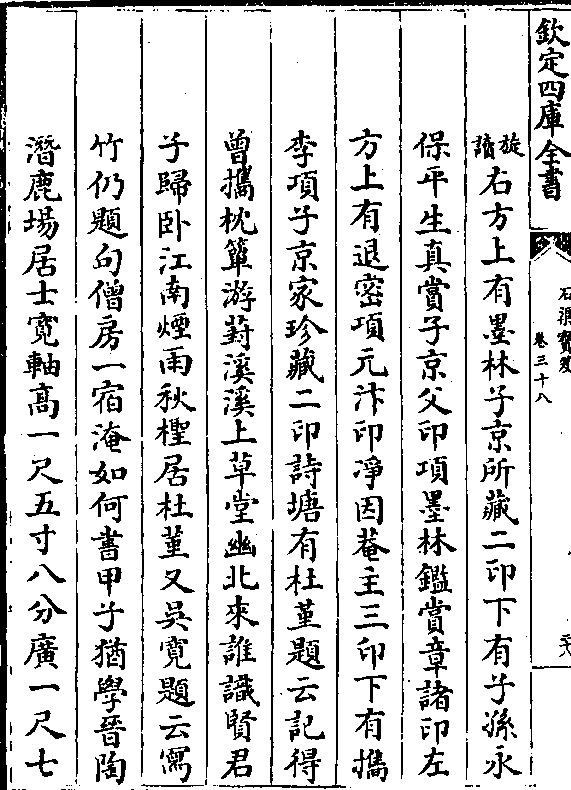 欽定四庫全書
石渠寶笈
卷三十八
旋讀右方上有墨林子京所藏二印下有子孫永
保平生真賞子京父印項墨林鑑賞章諸印左
方上有退密項元汴印淨因菴主三印下有檇
李項子京家珍藏二印詩塘有杜堇題云記得
曾攜枕簟游葑溪溪上草堂幽北來誰識賢君
子歸卧江南煙雨秋檉居杜堇又吳寛題云寫
竹仍題句僧房一宿淹如何書甲子猶學晉陶
潛鹿場居士寛軸高一尺五寸八分廣一尺七